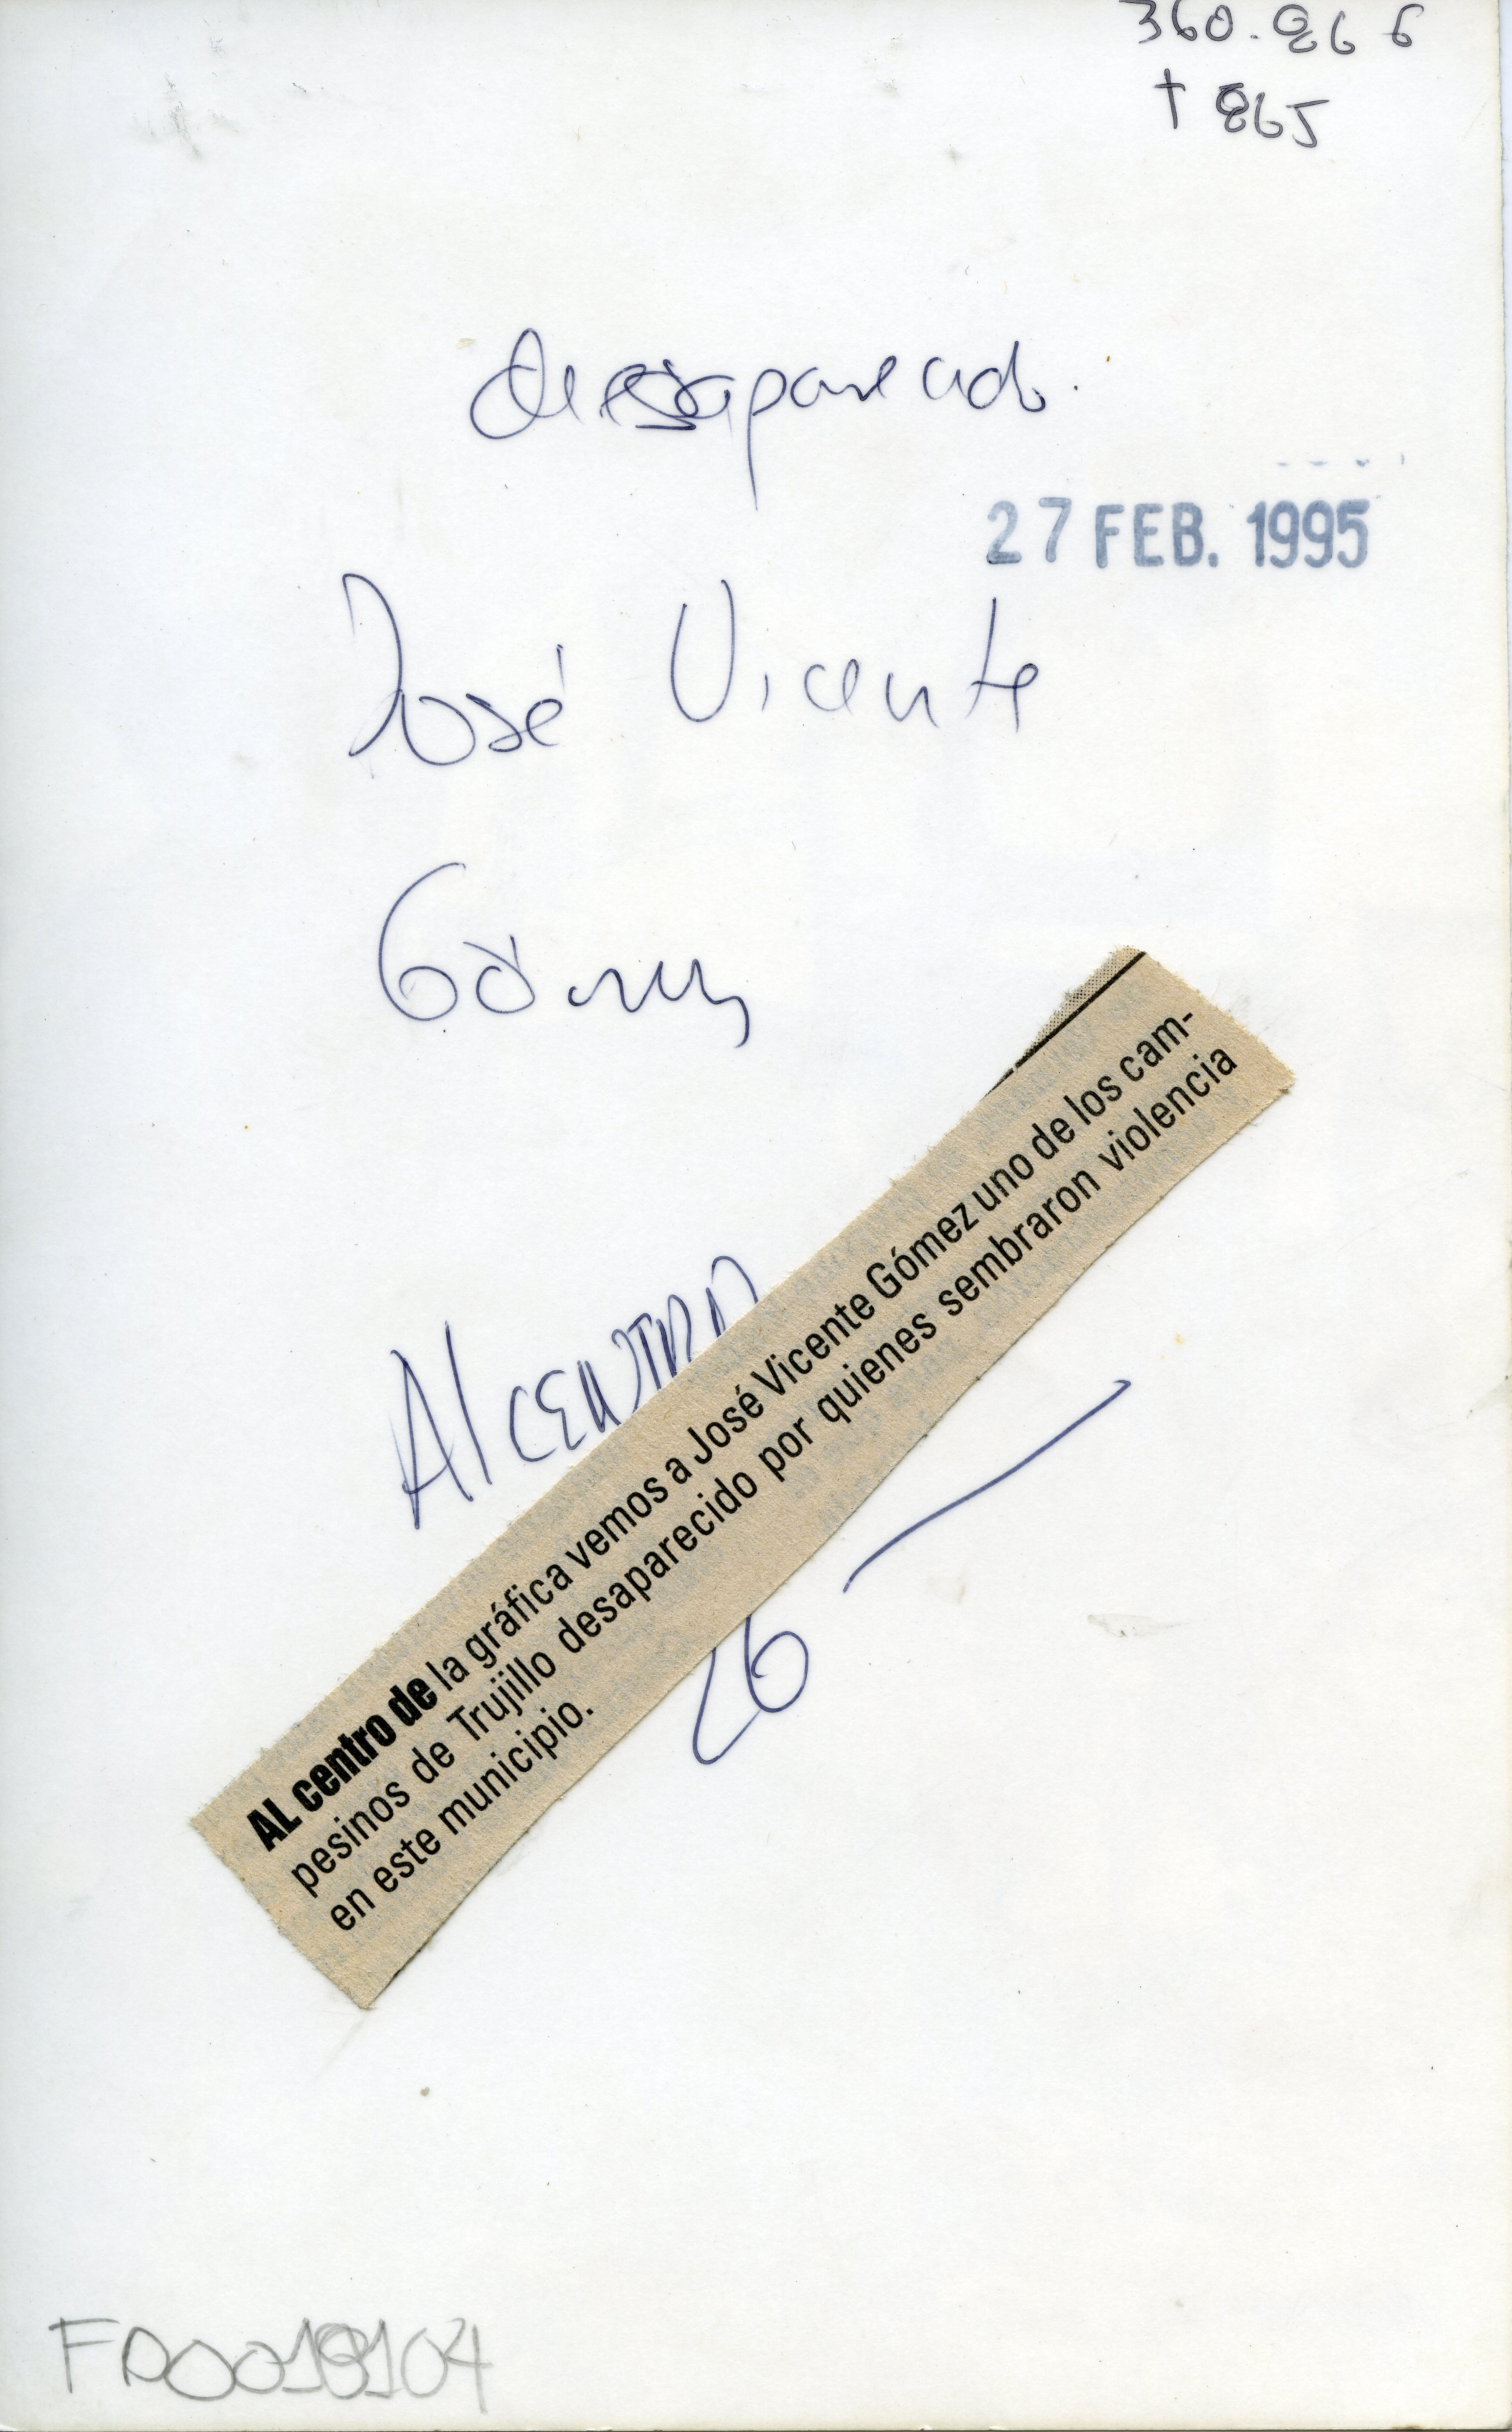 360.866
† 865
desaparecido.
27 FEB. 1995
José Vicente
Gómez
Al CENTRO
AL centro de la gráfica vemos a José Vicente Gómez uno de los cam-
pesinos de Trujillo desaparecido por quienes sembraron violencia
en este municipio.
26